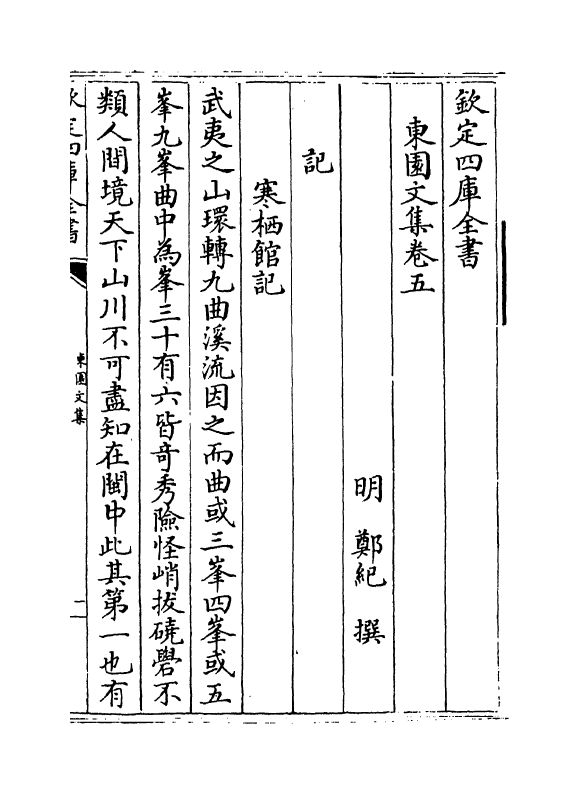 欽定四庫全書
東園文集卷五
明 鄭紀 撰
記
寒栖館記
武夷之山環轉九曲溪流因之而曲或三峯四峯或五
峯九峯曲中為峯三十有六皆竒秀險怪峭拔磽礐不
類人間境天下山川不可盡知在閩中此其第一也有
欽定四庫全書
東園文集
一